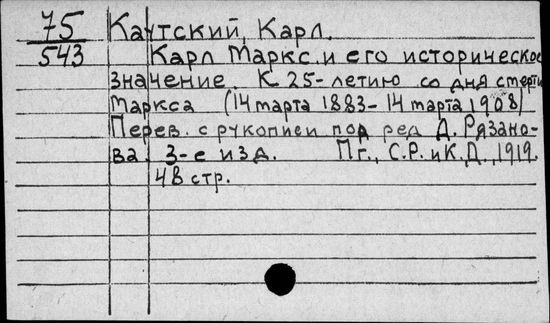 75 Каутский, Карл.
543 Карл Маркс и его историческое
значение К 25-летию со дня смерти
Маркса (14 марта 1883-14 марта 1908)
Перев. с рукописи под ред Д. Рязано-
ва. 3-е изд. Пг., С.Р. и К.Д., 1919.
48 стр.